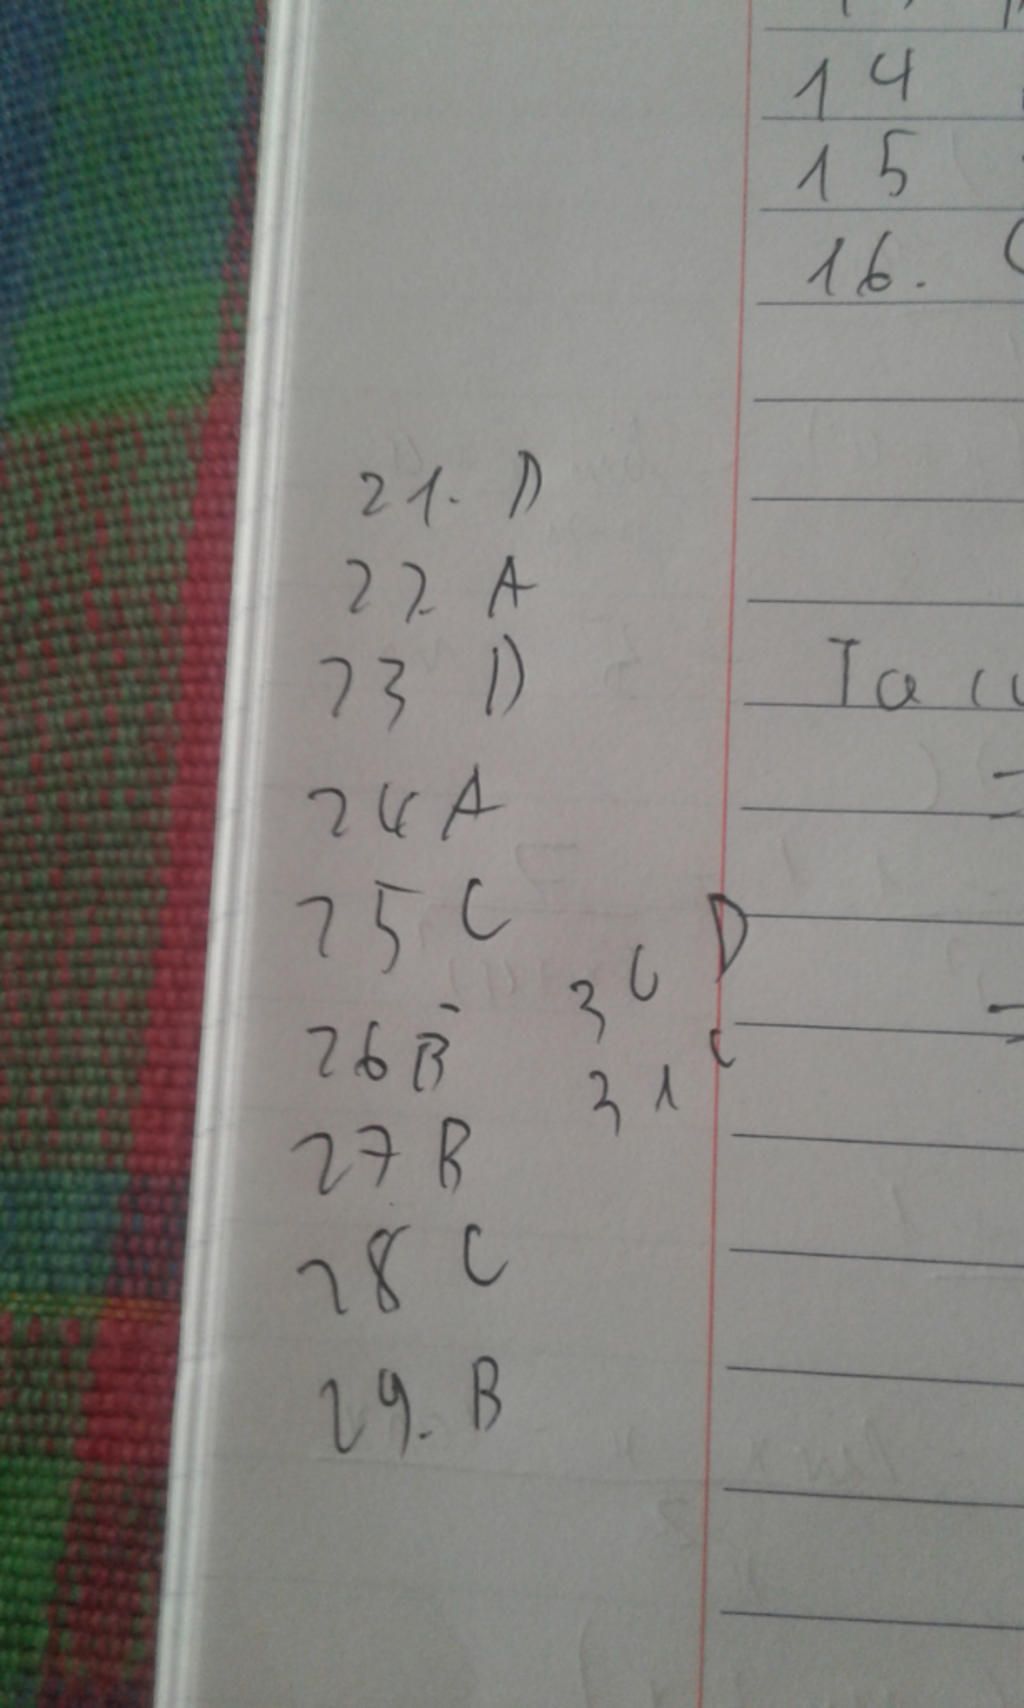 14
15
16.
21. D
22 A
23 D
24 A
25 C
26 B
27 B
28 C
29. B
30 D
31 C
Ta có